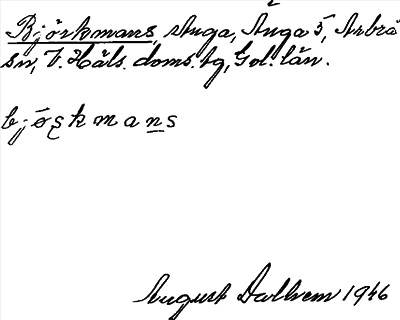 Björkmans, Änga, Änga 5, Arbrå
sn, V. Häls. doms. tg, Gvl. län.
bjöʂkmans
August Dalhem 1946